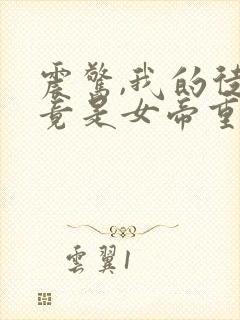 震驚,我的徒
竟是女帝重
雲翼1